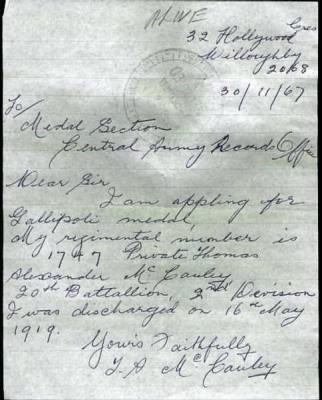 ALIVE
32 Hollywood Cres
Willoughby
2068
30/11/67
To/
Medal Section
Central Army Records Office
Dear Sir
I am appling for
Gallipoli medal,
My rigimental number is
1747 Private Thomas
Alexander McCauley
20th Battallion, 2nd Division
I was discharged on 16th May
1919.
Yours Faithfully
T. A McCauley